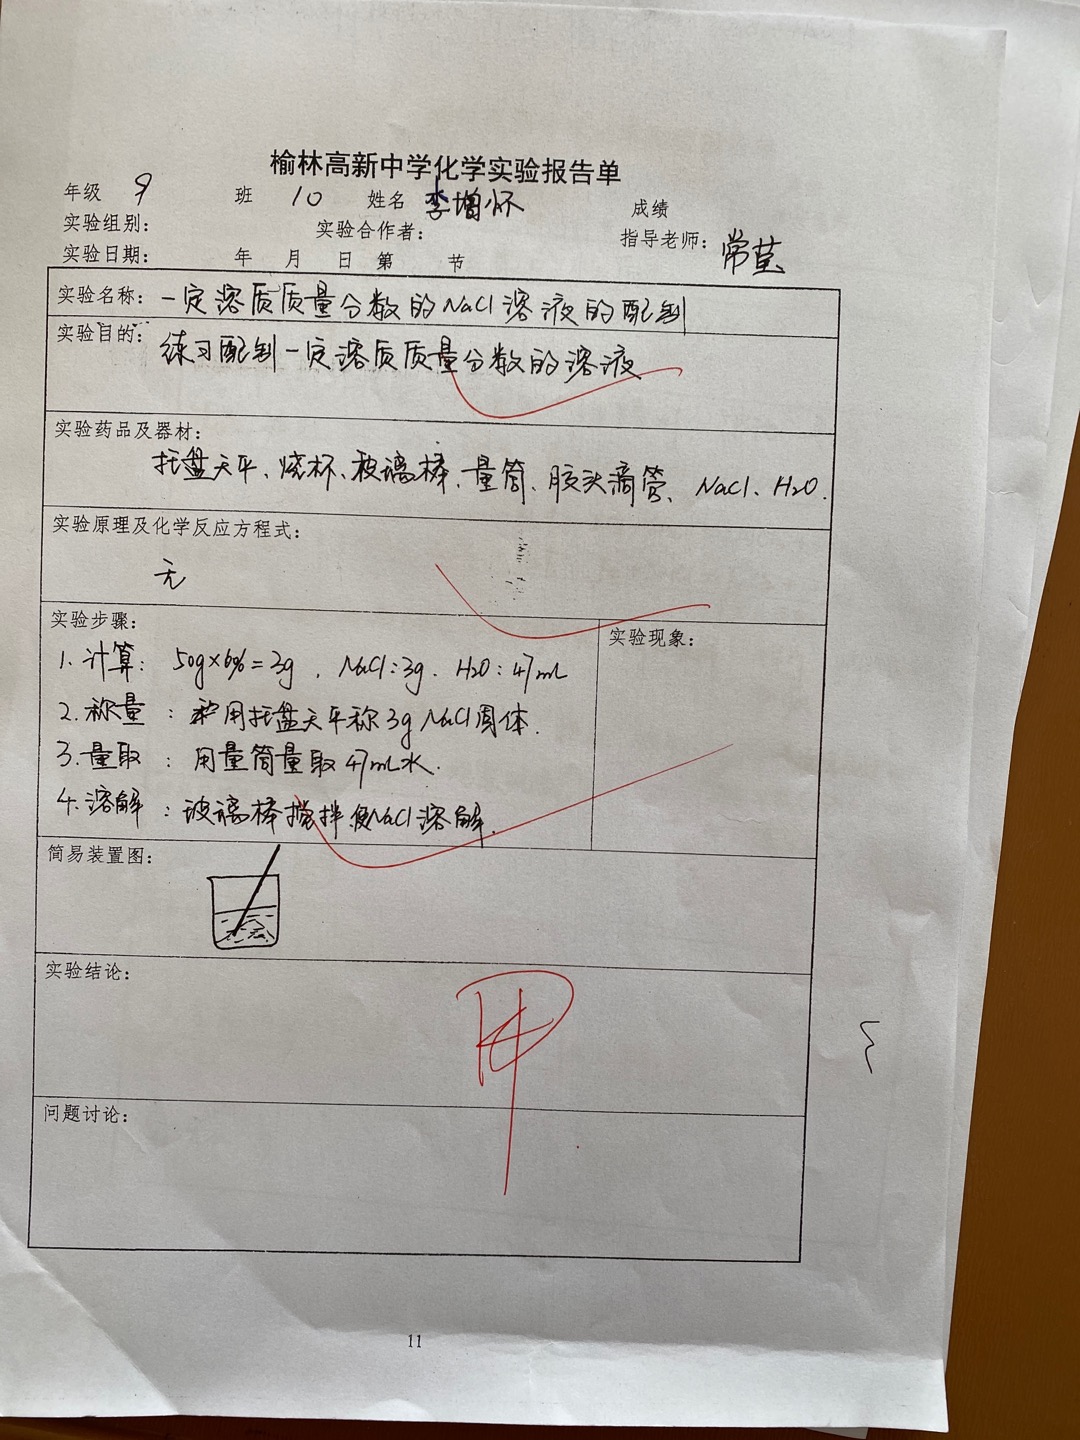 榆林高新中学化学实验报告单
年级 9 班 10 姓名 李增怀 成绩
实验组别： 实验合作者： 指导老师： 常莹
实验日期： 年 月 日 第 节
实验名称：一定溶质质量分数的NaCl溶液的配制
实验目的：练习配制一定溶质质量分数的溶液
实验药品及器材：
托盘天平、烧杯、玻璃棒、量筒、胶头滴管、NaCl、H2O.
实验原理及化学反应方程式：
无
实验步骤： 实验现象：
1. 计算：50g×6%=3g . NaCl:3g. H2O:47mL
2. 称量：用托盘天平称3g NaCl固体.
3. 量取：用量筒量取47mL水.
4. 溶解：玻璃棒搅拌使NaCl溶解.
简易装置图：
实验结论：
问题讨论：
11